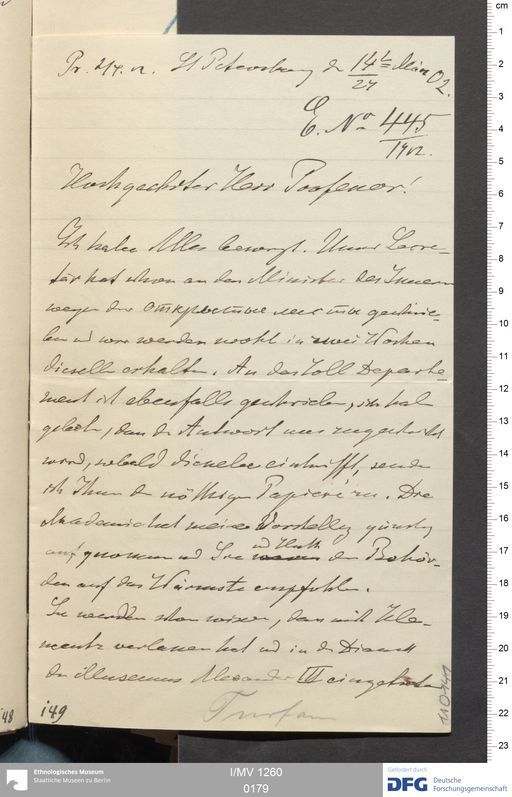 Pr. 2/4. 02. St Petersburg d 14/27 t März 02.
E. No 445/1902.
Hochgeehrter Herr Professor!
Ich habe Alles besorgt. Unser Secre-
tär hat schon an den Minister des Innern
wegen der открытые листы geschrie-
ben und wir werden wohl in zwei Wochen
dieselben erhalten. An das Zoll Departe
ment ist ebenfalls geschrieben, ich habe
gebeten, dass die Antwort mir zugeschickt
wird, sobald dieselbe eintrifft, sende
ich Ihnen die nöthigen Papiere zu. Die
Akademie hat meine Vorstellung günstig
aufgenommen und Sie und Huth den Behör-
den auf das Wärmste empfohlen.
Sie werden schon wissen, dass mich Kle-
mentz verlassen hat und in den Dienst
des Museums Alexander III eingetreten
Turfan
149
148
cm
1
2
3
4
5
6
7
8
9
10
11
12
13
14
15
16
17
18
19
20
21
22
23
Ethnologisches Museum
Staatliche Museen zu Berlin
I/MV 1260
0179
Gefördert durch
DFG
Deutsche
Forschungsgemeinschaft